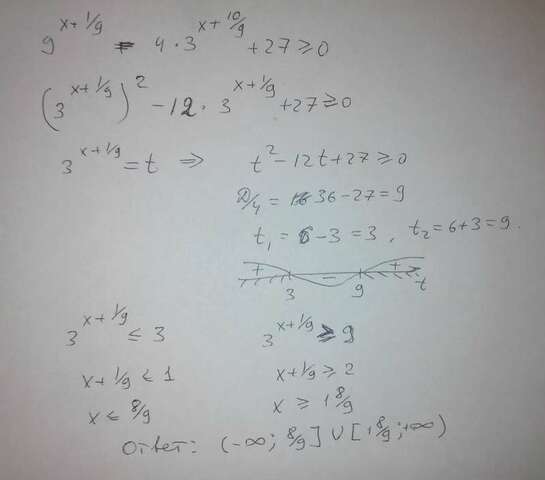 9^(x+1/9) - 4·3^(x+10/9) +27≥0
(3^(x+1/9))^2 -12·3^(x+1/9) +27≥0
3^(x+1/9) =t ⇒ t^2-12t+27≥0
D/4 = 36-27=9
t₁ = 6-3=3, t₂=6+3=9.
+ - +
3 9 t
3^(x+1/9) ≤ 3 3^(x+1/9) ≥ 9
x+1/9 ≤ 1 x+1/9 ≥ 2
x ≤ 8/9 x ≥ 1 8/9
Ответ: (-∞; 8/9] ∪ [1 8/9; +∞)